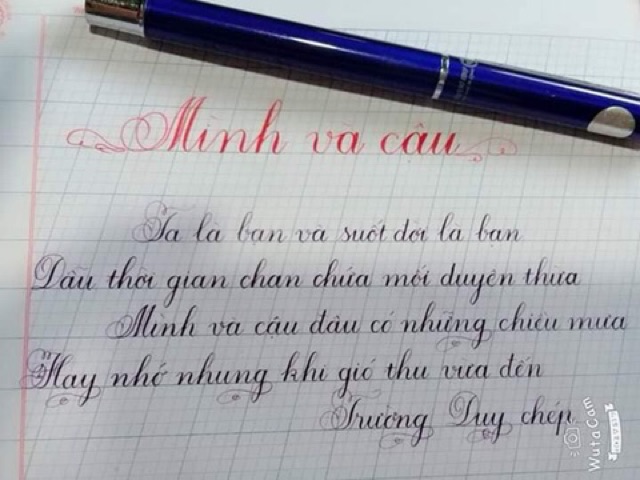 Mình và cậu
Ta là bạn và suốt đời là bạn
Dẫu thời gian chan chứa mối duyên thừa
Mình và cậu đâu có những chiều mưa
Hay nhớ nhung khi gió thu vừa đến
Trường Duy chép
WutaCam